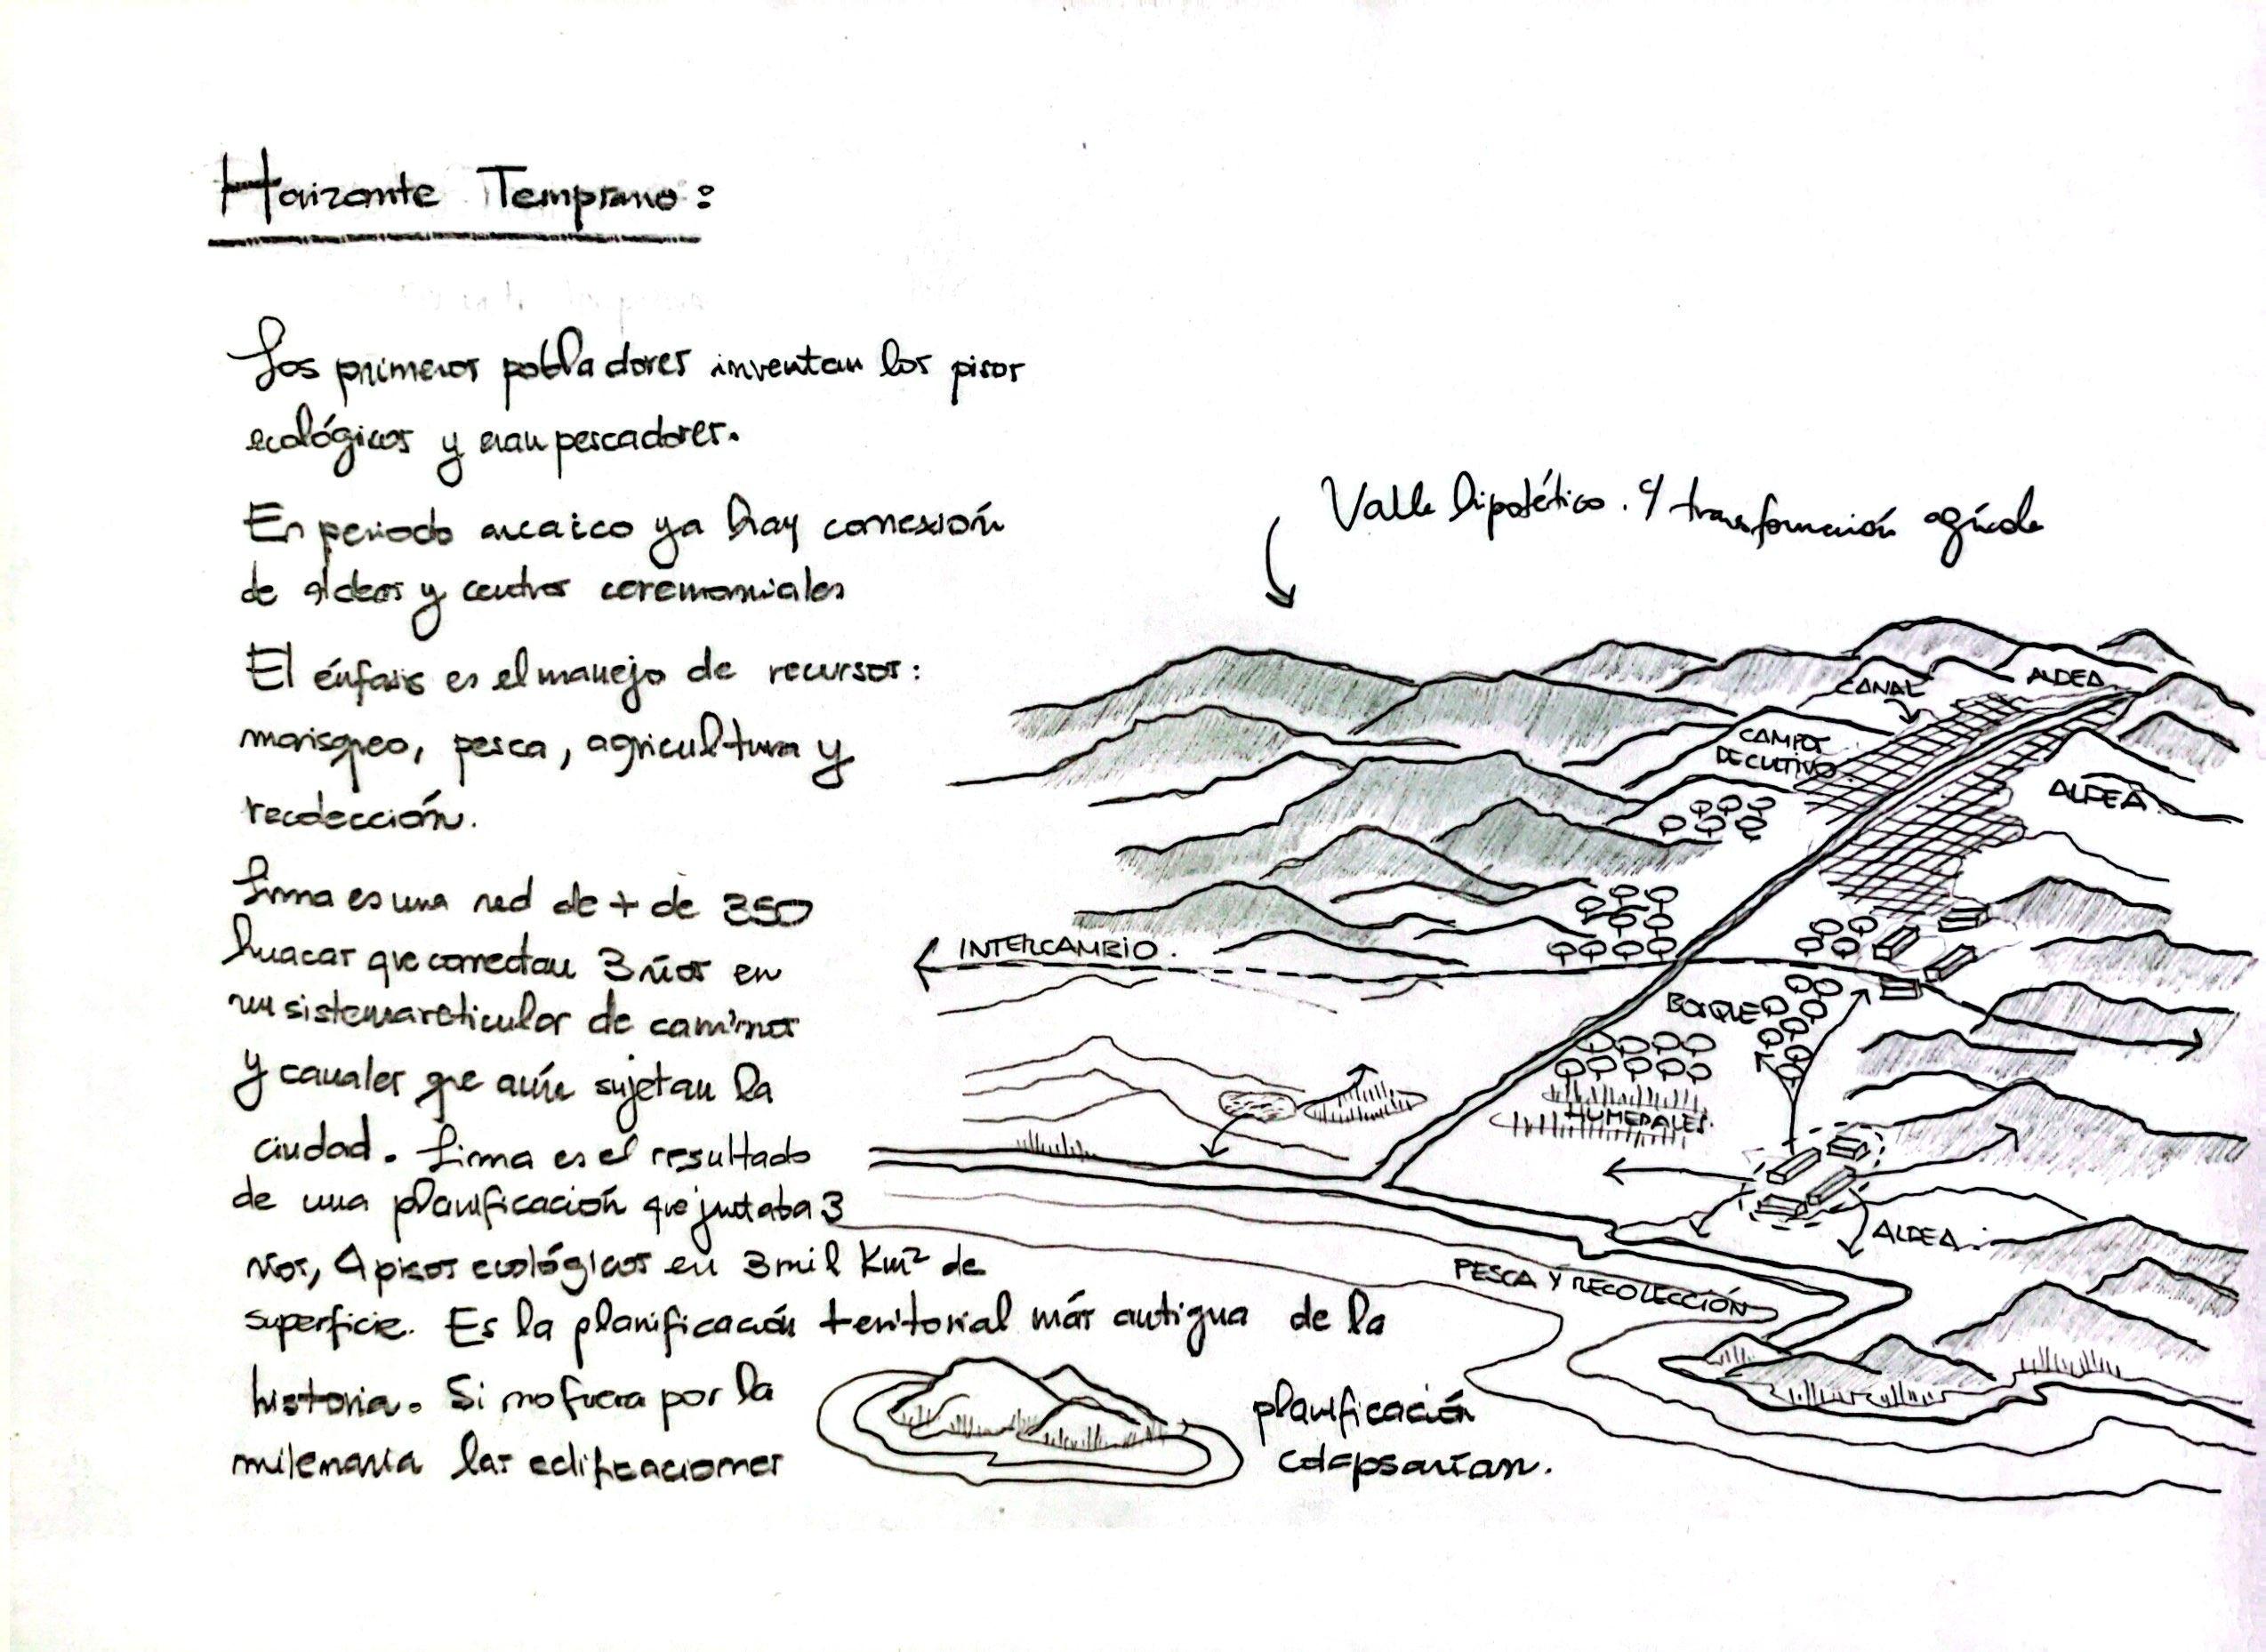 Horizonte Temprano:
Los primeros pobladores inventan los pisos
ecológicos y eran pescadores.
En periodo arcaico ya hay conexión
de aldeas y centros ceremoniales
El énfasis es el manejo de recursos:
marisqueo, pesca, agricultura y
recolección.
Lima es una red de + de 350
huacas que conectan 3 ríos en
un sistema reticular de caminos
y canales que aún sujetan la
ciudad. Lima es el resultado
de una planificación que juntaba 3
ríos, 4 pisos ecológicos en 3 mil Km² de
superficie. Es la planificación territorial más antigua de la
historia. Si no fuera por la planificación
milenaria las edificaciones colapsarían.
Valle hipotético. c/ transformación agrícola
CANAL
ALDEA
CAMPOS
DE CULTIVO
ALDEA
INTERCAMBIO.
BOSQUE
HUMEDALES.
ALDEA.
PESCA Y RECOLECCIÓN